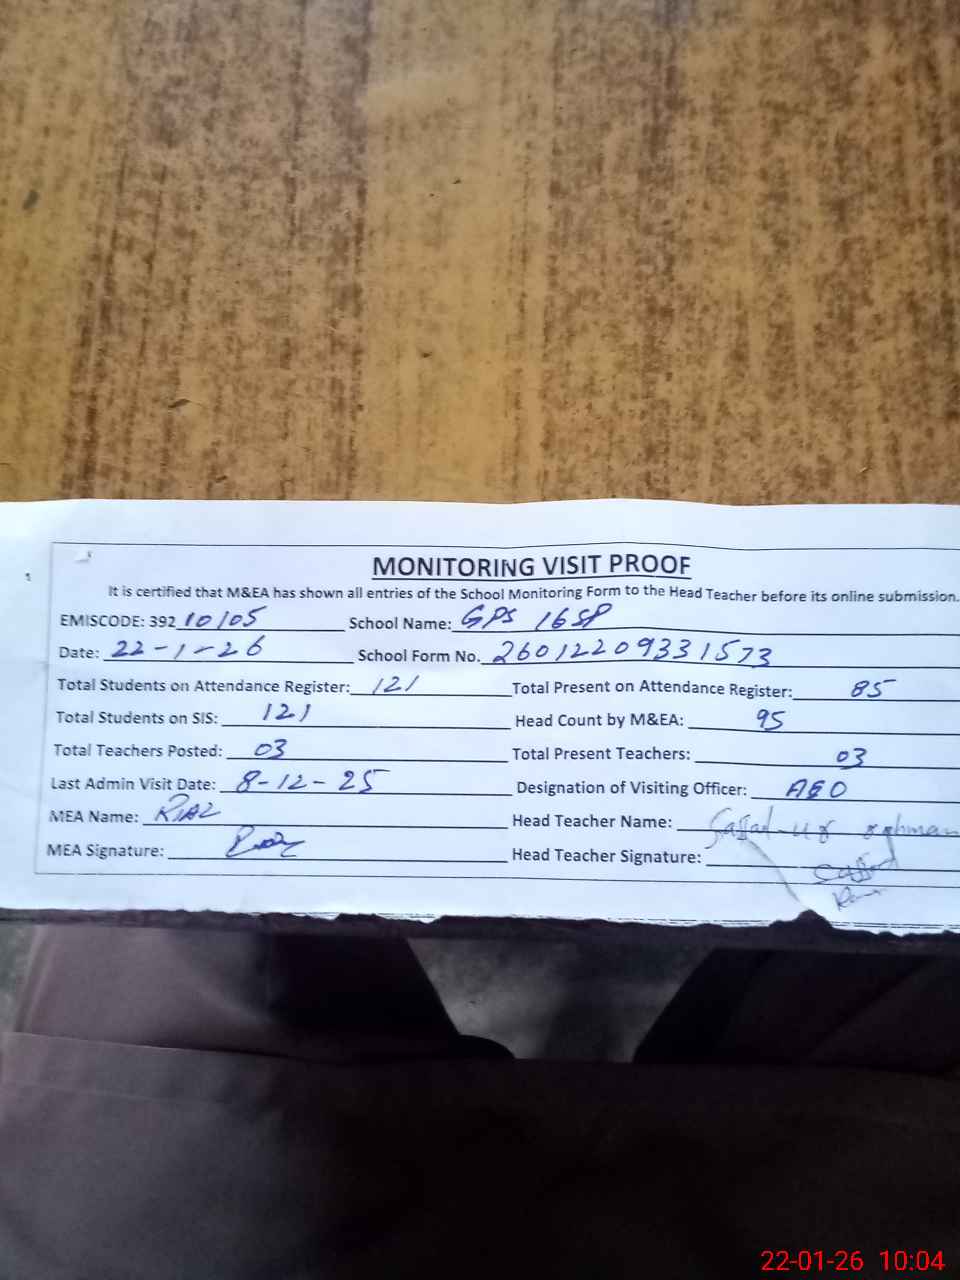 MONITORING VISIT PROOF
It is certified that M&EA has shown all entries of the School Monitoring Form to the Head Teacher before its online submission.
EMISCODE: 39210105 School Name: GPS 16SP
Date: 22-1-26 School Form No. 26012209331573
Total Students on Attendance Register: 121 Total Present on Attendance Register: 85
Total Students on SIS: 121 Head Count by M&EA: 95
Total Teachers Posted: 03 Total Present Teachers: 03
Last Admin Visit Date: 8-12-25 Designation of Visiting Officer: AEO
MEA Name: RIAZ Head Teacher Name: ur rehman
MEA Signature: Head Teacher Signature:
22-01-26 10:04